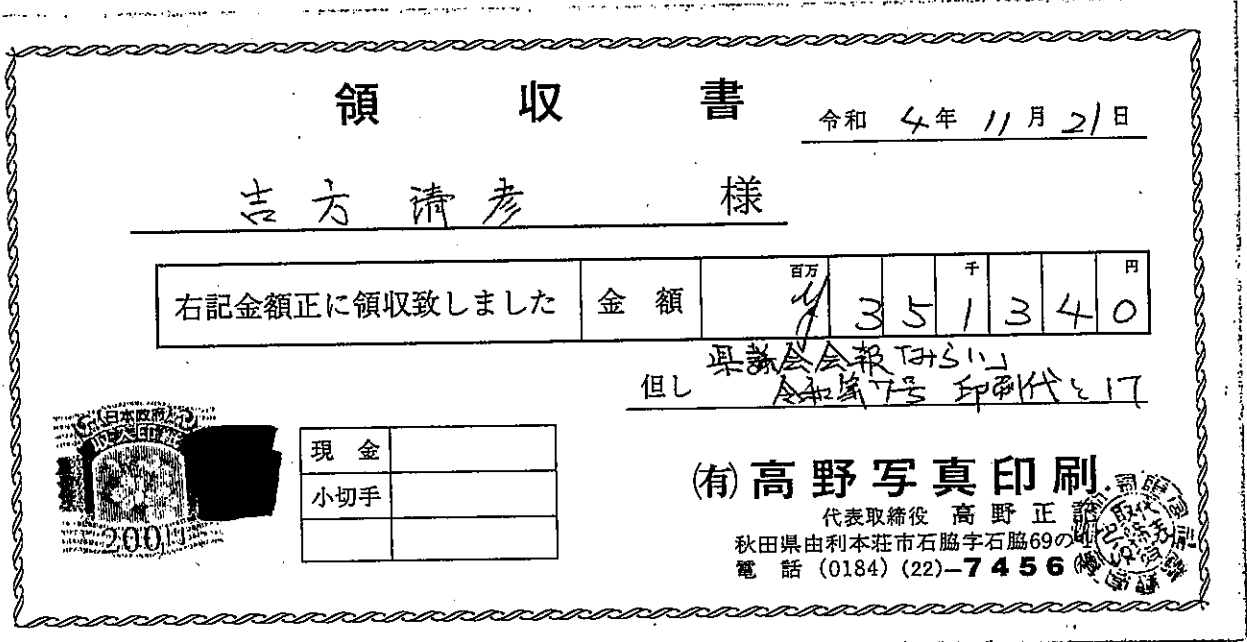 領収書
令和 4年 11月 21日
吉方清彦 様
右記金額正に領収致しました 金額 百万 千 円 ¥351340
県議会会報「みらい」
但し 令和第7号 印刷代として
日本政府
収入印紙
200円
現金
小切手
(有)高野写真印刷
代表取締役 高野正
秋田県由利本荘市石脇字石脇69の
電話 (0184) (22)-7456